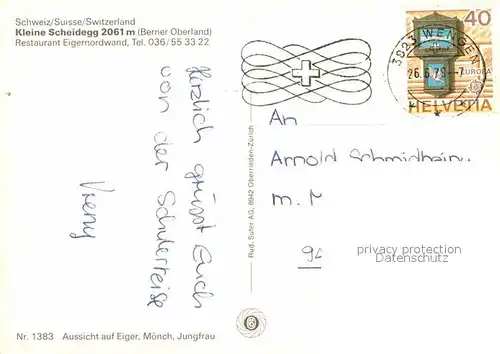 Schweiz/Suisse/Switzerland
Kleine Scheidegg 2061 m (Berner Oberland)
Restaurant Eigernordwand, Tel. 036/55 33 22
Herzlich grüsst Euch
von der Schulerreise
Vreny
Nr. 1383 Aussicht auf Eiger, Mönch, Jungfrau
Rud. Suter AG, 8942 Oberrieden-Zürich
3823 WENGEN
26.6.79
40
EUROPA
HELVETIA
An
Arnold Schmidhein.
privacy protection
Datenschutz